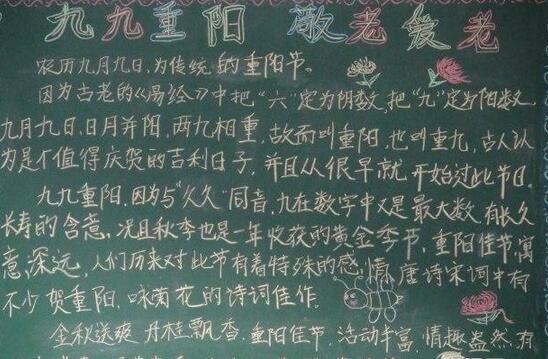 九九重阳 敬老爱老
农历九月九日，为传统的重阳节。
因为古老的《易经》中把“六”定为阴数，把“九”定为阳数，
九月九日，日月并阳，两九相重，故而叫重阳，也叫重九，古人认
为是个值得庆贺的吉利日子，并且从很早就开始过此节日。
九九重阳，因为与“久久”同音，九在数字中又是最大数，有长久
长寿的含意，况且秋季也是一年收获的黄金季节，重阳佳节，寓
意深远，人们历来对此节有着特殊的感情，唐诗宋词中有
不少贺重阳，咏菊花的诗词佳作。
金秋送爽，丹桂飘香，重阳佳节，活动丰富，情趣盎然，有